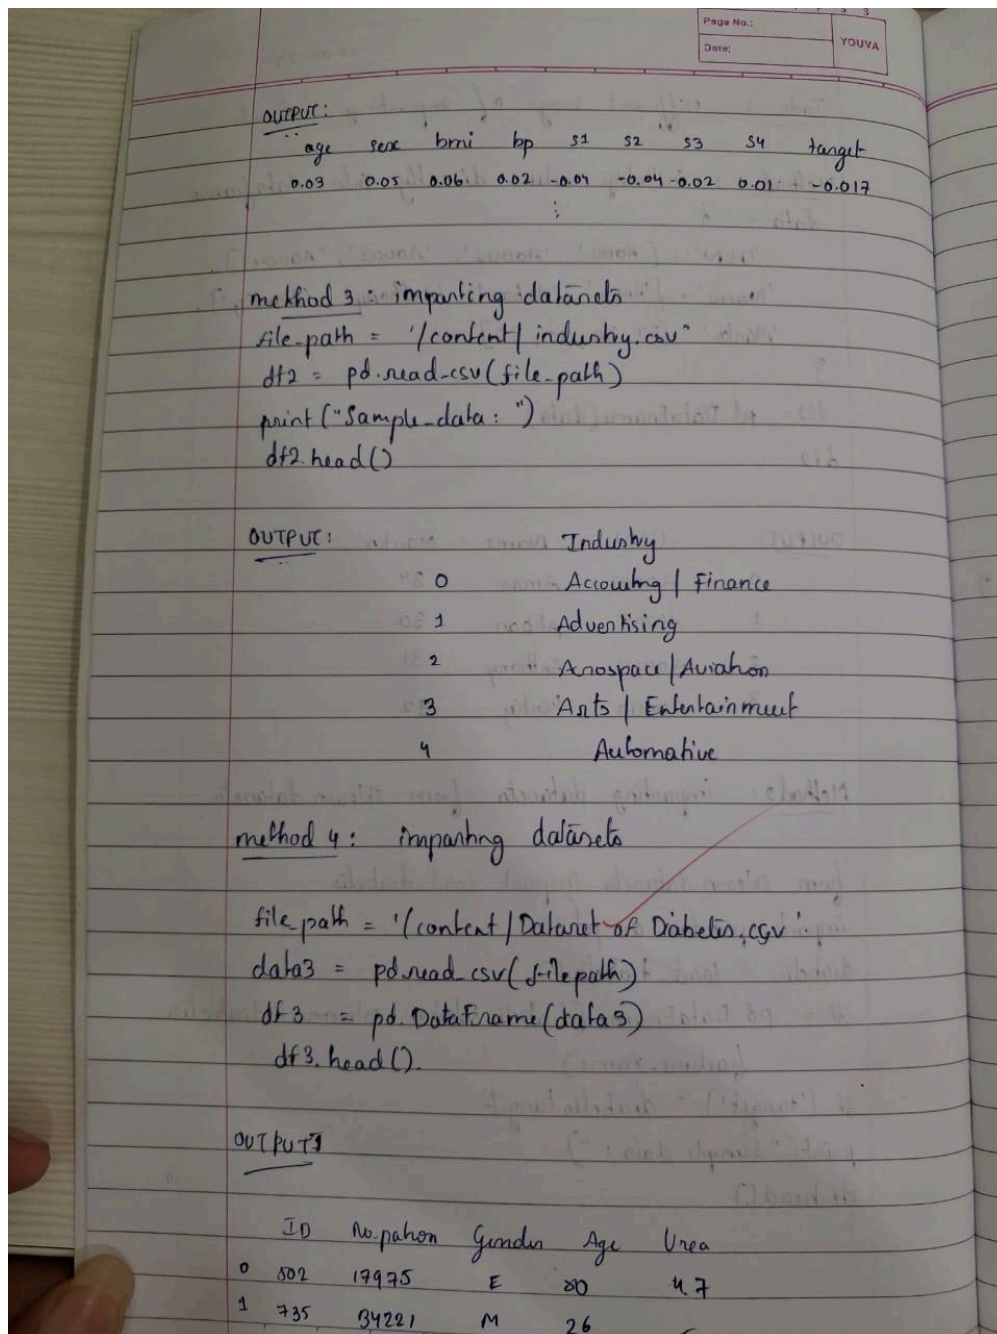 Page No.:
Date:
YOUVA
OUTPUT:
age sex bmi bp s1 s2 s3 s4 target
0.03 0.05 0.06 0.02 -0.04 -0.04 -0.02 0.01 -0.017
⋮
method 3: importing datasets
file_path = '/content/industry.csv"
df2 = pd.read_csv(file_path)
print("Sample_data: ")
df2.head()
OUTPUT:
Industry
0 Accounting / Finance
1 Advertising
2 Aerospace / Aviation
3 Arts / Entertainment
4 Automative
method 4: importing datasets
file_path = '/content/Dataset of Diabetes.csv'
data3 = pd.read_csv(filepath)
df3 = pd.DataFrame(data3)
df3.head().
OUTPUT:
ID No.pation Gender Age Urea
0 502 17975 F 50 4.7
1 735 34221 M 26